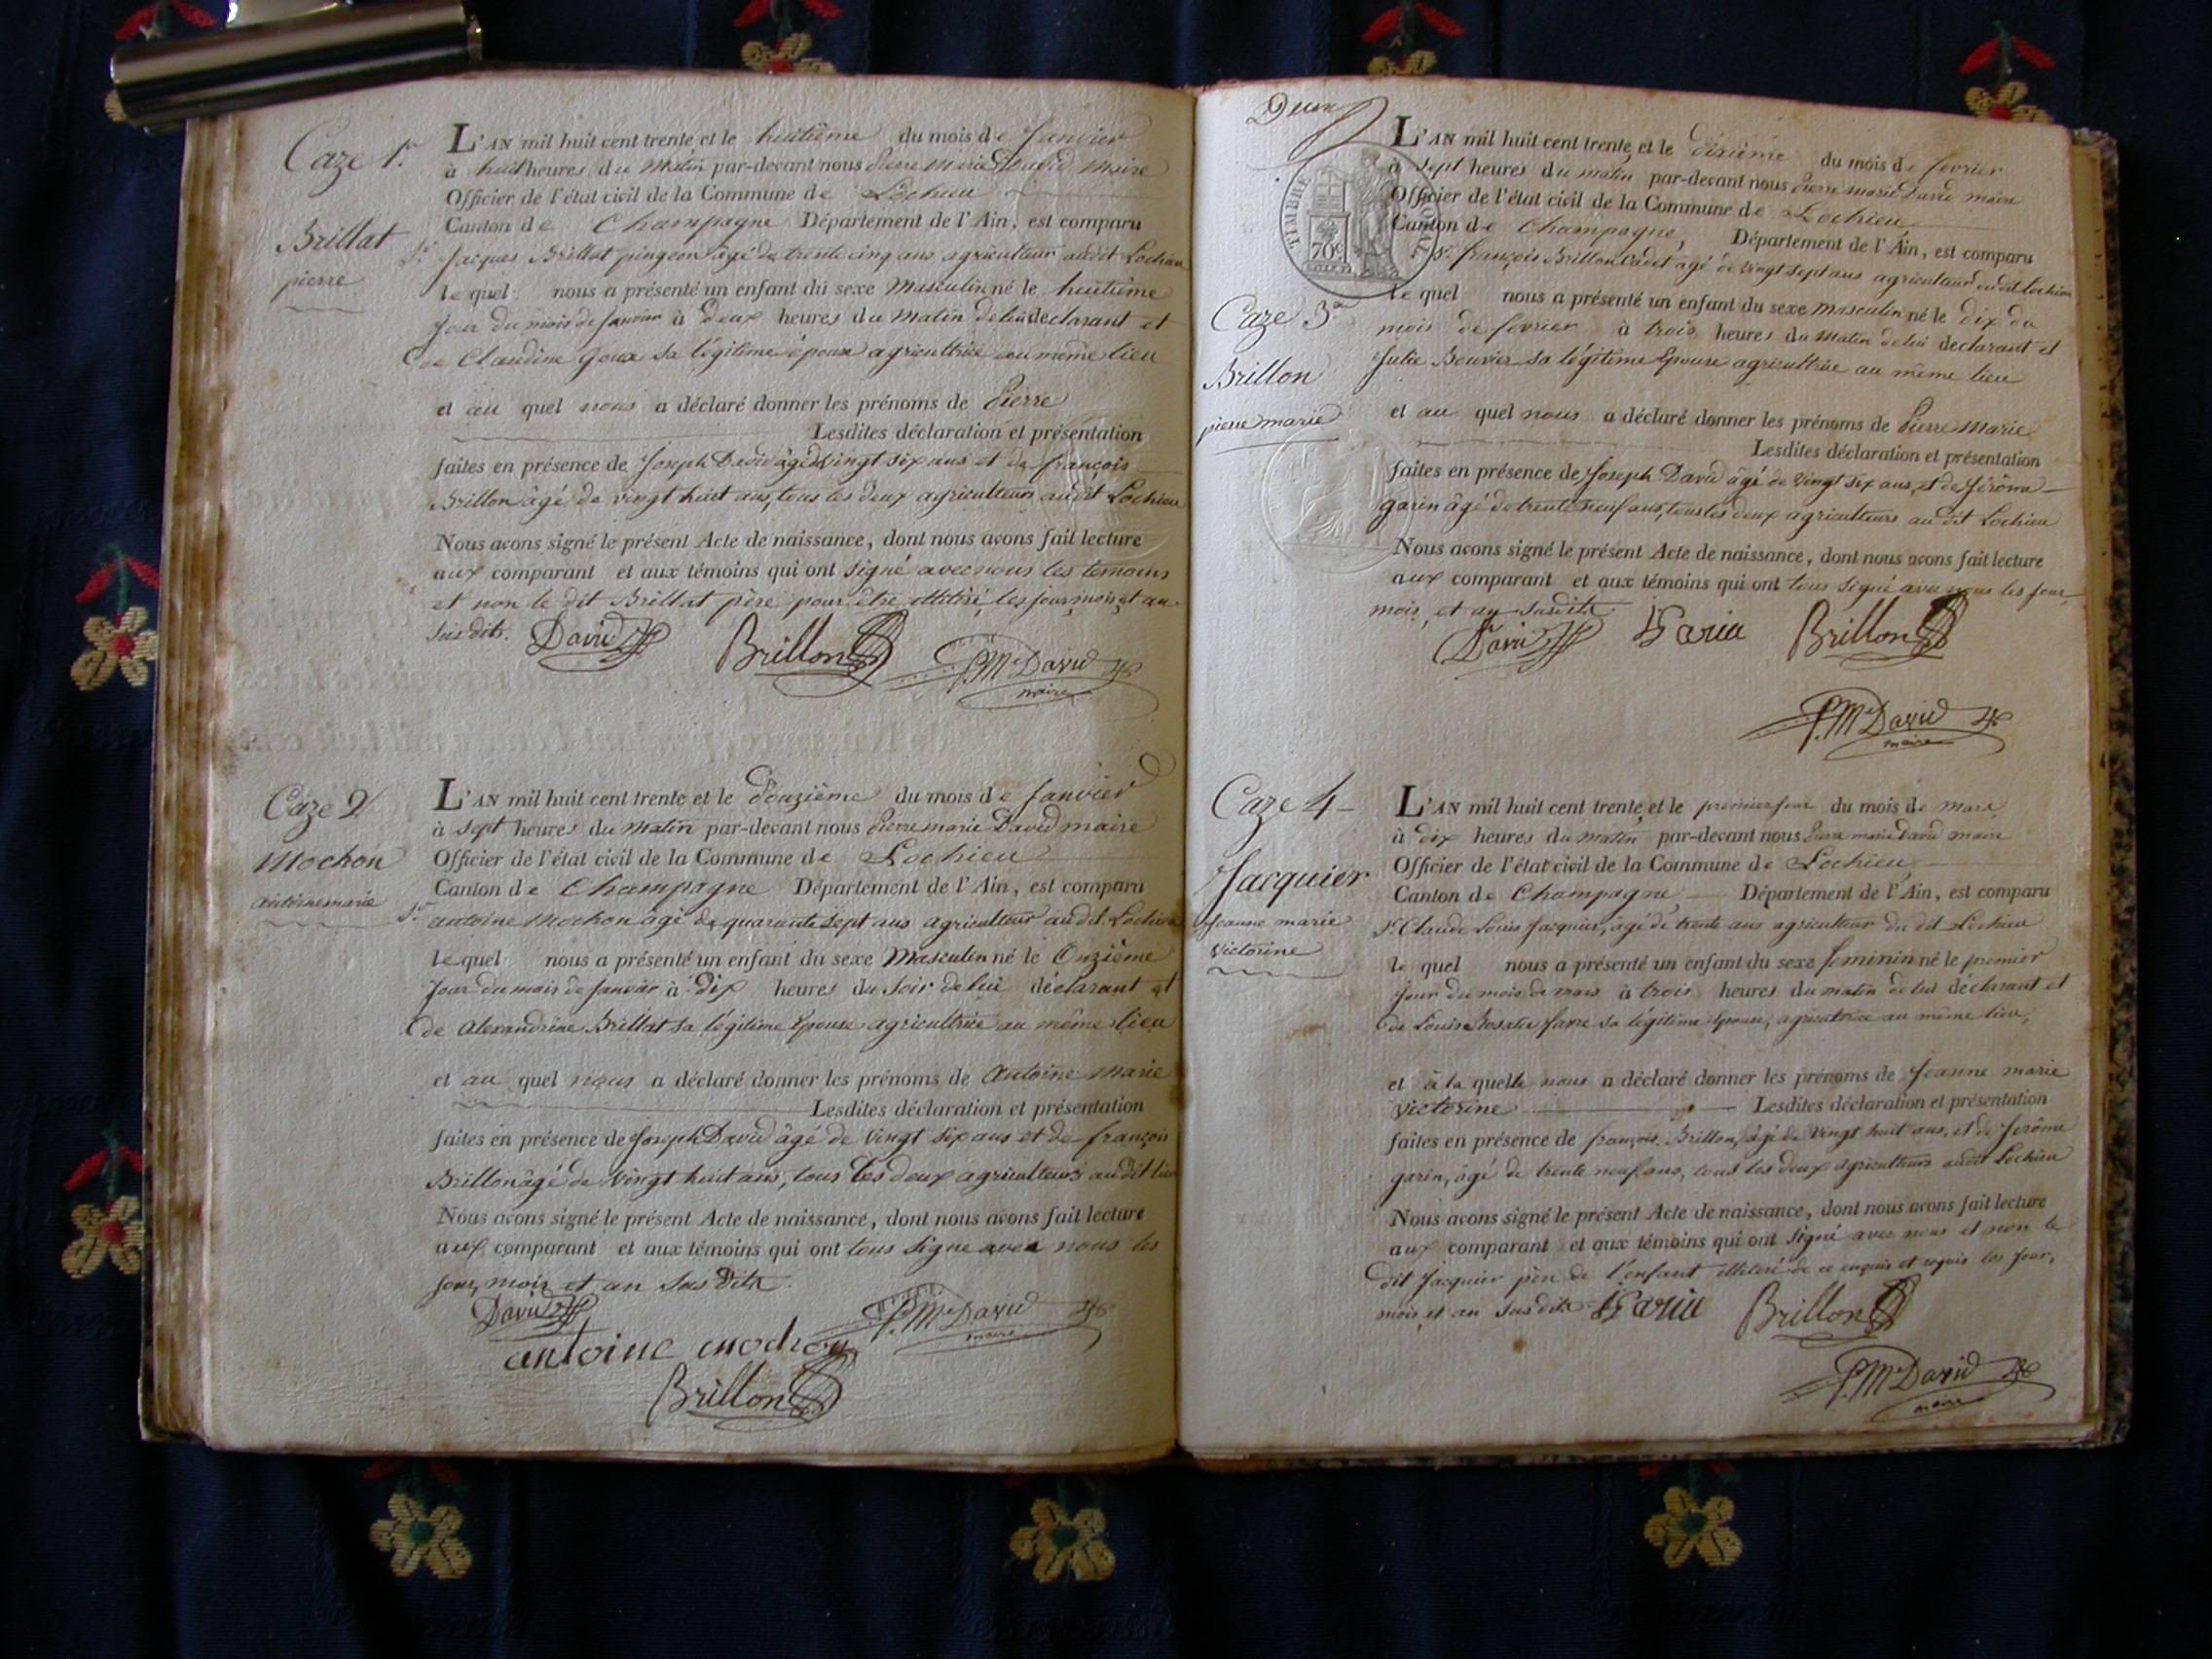 Caze 1re
Brillat
pierre
L'AN mil huit cent trente et le huitième du mois de Janvier
à huit heures du Matin par-devant nous Pierre Marie David Maire
Officier de l'état civil de la Commune de Lochieu
Canton de Champagne Département de l'Ain, est comparu
Sr Jacques Brillat pingeon âgé de trente cinq ans agriculteur audit Lochieu
le quel nous a présenté un enfant du sexe Masculin né le huitième
Jour du mois de Janvier à Deux heures du Matin de lui déclarant et
de Claudine Goux sa légitime épouse agricultrice au même lieu
et au quel nous a déclaré donner les prénoms de Pierre
Lesdites déclaration et présentation
faites en présence de Joseph David âgé de vingt six ans et de françois
Brillon âgé de vingt huit ans, tous les deux agriculteurs audit Lochieu
Nous avons signé le présent Acte de naissance, dont nous avons fait lecture
aux comparant et aux témoins qui ont signé avec nous les témoins
et non le dit Brillat père pour être illitéré, les jour, mois, et an
sus dits. David Brillon P. M. David
maire
Caze 2
Mochon
antoine marie
L'AN mil huit cent trente et le Douzième du mois de Janvier
à sept heures du Matin par-devant nous Pierre marie David maire
Officier de l'état civil de la Commune de Lochieu
Canton de Champagne Département de l'Ain, est comparu
Sr antoine Mochon âgé de quarante sept ans agriculteur audit Lochieu
le quel nous a présenté un enfant du sexe Masculin né le Onzième
Jour du mois de Janvier à Dix heures du Soir de lui déclarant et
de Alexandrine Brillat sa légitime Epouse agricultrice au même lieu
et au quel nous a déclaré donner les prénoms de Antoine Marie
Lesdites déclaration et présentation
faites en présence de Joseph David âgé de vingt six ans et de françois
Brillon âgé de vingt huit ans, tous les deux agriculteurs audit lieu
Nous avons signé le présent Acte de naissance, dont nous avons fait lecture
aux comparant et aux témoins qui ont tous signé avec nous les
jour, mois et an sus dits.
David P. M. David
maire
antoine mochon
Brillon
Deux
TIMBRE ROYAL
70c
Caze 3e
Brillon
pierre marie
L'AN mil huit cent trente et le dixième du mois de fevrier
à sept heures du matin par-devant nous Pierre marie David maire
Officier de l'état civil de la Commune de Lochieu
Canton de Champagne, Département de l'Ain, est comparu
Sr françois Brillon Cadet âgé de vingt sept ans agriculteur audit Lochieu
le quel nous a présenté un enfant du sexe masculin né le dix du
mois de fevrier à trois heures du Matin de lui déclarant et
Julie Bouvier sa légitime Epouse agricultrice au même lieu
et au quel nous a déclaré donner les prénoms de Pierre Marie
Lesdites déclaration et présentation
faites en présence de Joseph David âgé de vingt six ans et de Jérôme
garin âgé de trente neuf ans, tous les deux agriculteurs au dit Lochieu
Nous avons signé le présent Acte de naissance, dont nous avons fait lecture
aux comparant et aux témoins qui ont tous signé avec nous les jour,
mois, et an susdits
David Brillon
P. M. David
maire
Caze 4
Jacquier
Jeanne marie
Victorine
L'AN mil huit cent trente et le premier jour du mois de mars
à dix heures du matin par-devant nous Pierre marie David maire
Officier de l'état civil de la Commune de Lochieu,
Canton de Champagne, Département de l'Ain, est comparu
Sr Claude Louis Jacquier, âgé de trente ans agriculteur du dit Lochieu
le quel nous a présenté un enfant du sexe feminin né le premier
Jour du mois de mars à trois heures du matin de lui déclarant et
de Louise Rosalie favre sa légitime Epouse, agricultrice au même lieu,
et à la quelle nous a déclaré donner les prénoms de Jeanne marie
victorine Lesdites déclaration et présentation
faites en présence de françois Brillon, âgé de vingt huit ans, et de Jérôme
garin, âgé de trente neuf ans, tous les deux agriculteurs audit Lochieu
Nous avons signé le présent Acte de naissance, dont nous avons fait lecture
aux comparant et aux témoins qui ont signé avec nous et non le
dit Jacquier père de l'enfant illitéré de ce enquis et requis les jour,
mois, et an sus dits Brillon
P. M. David
maire